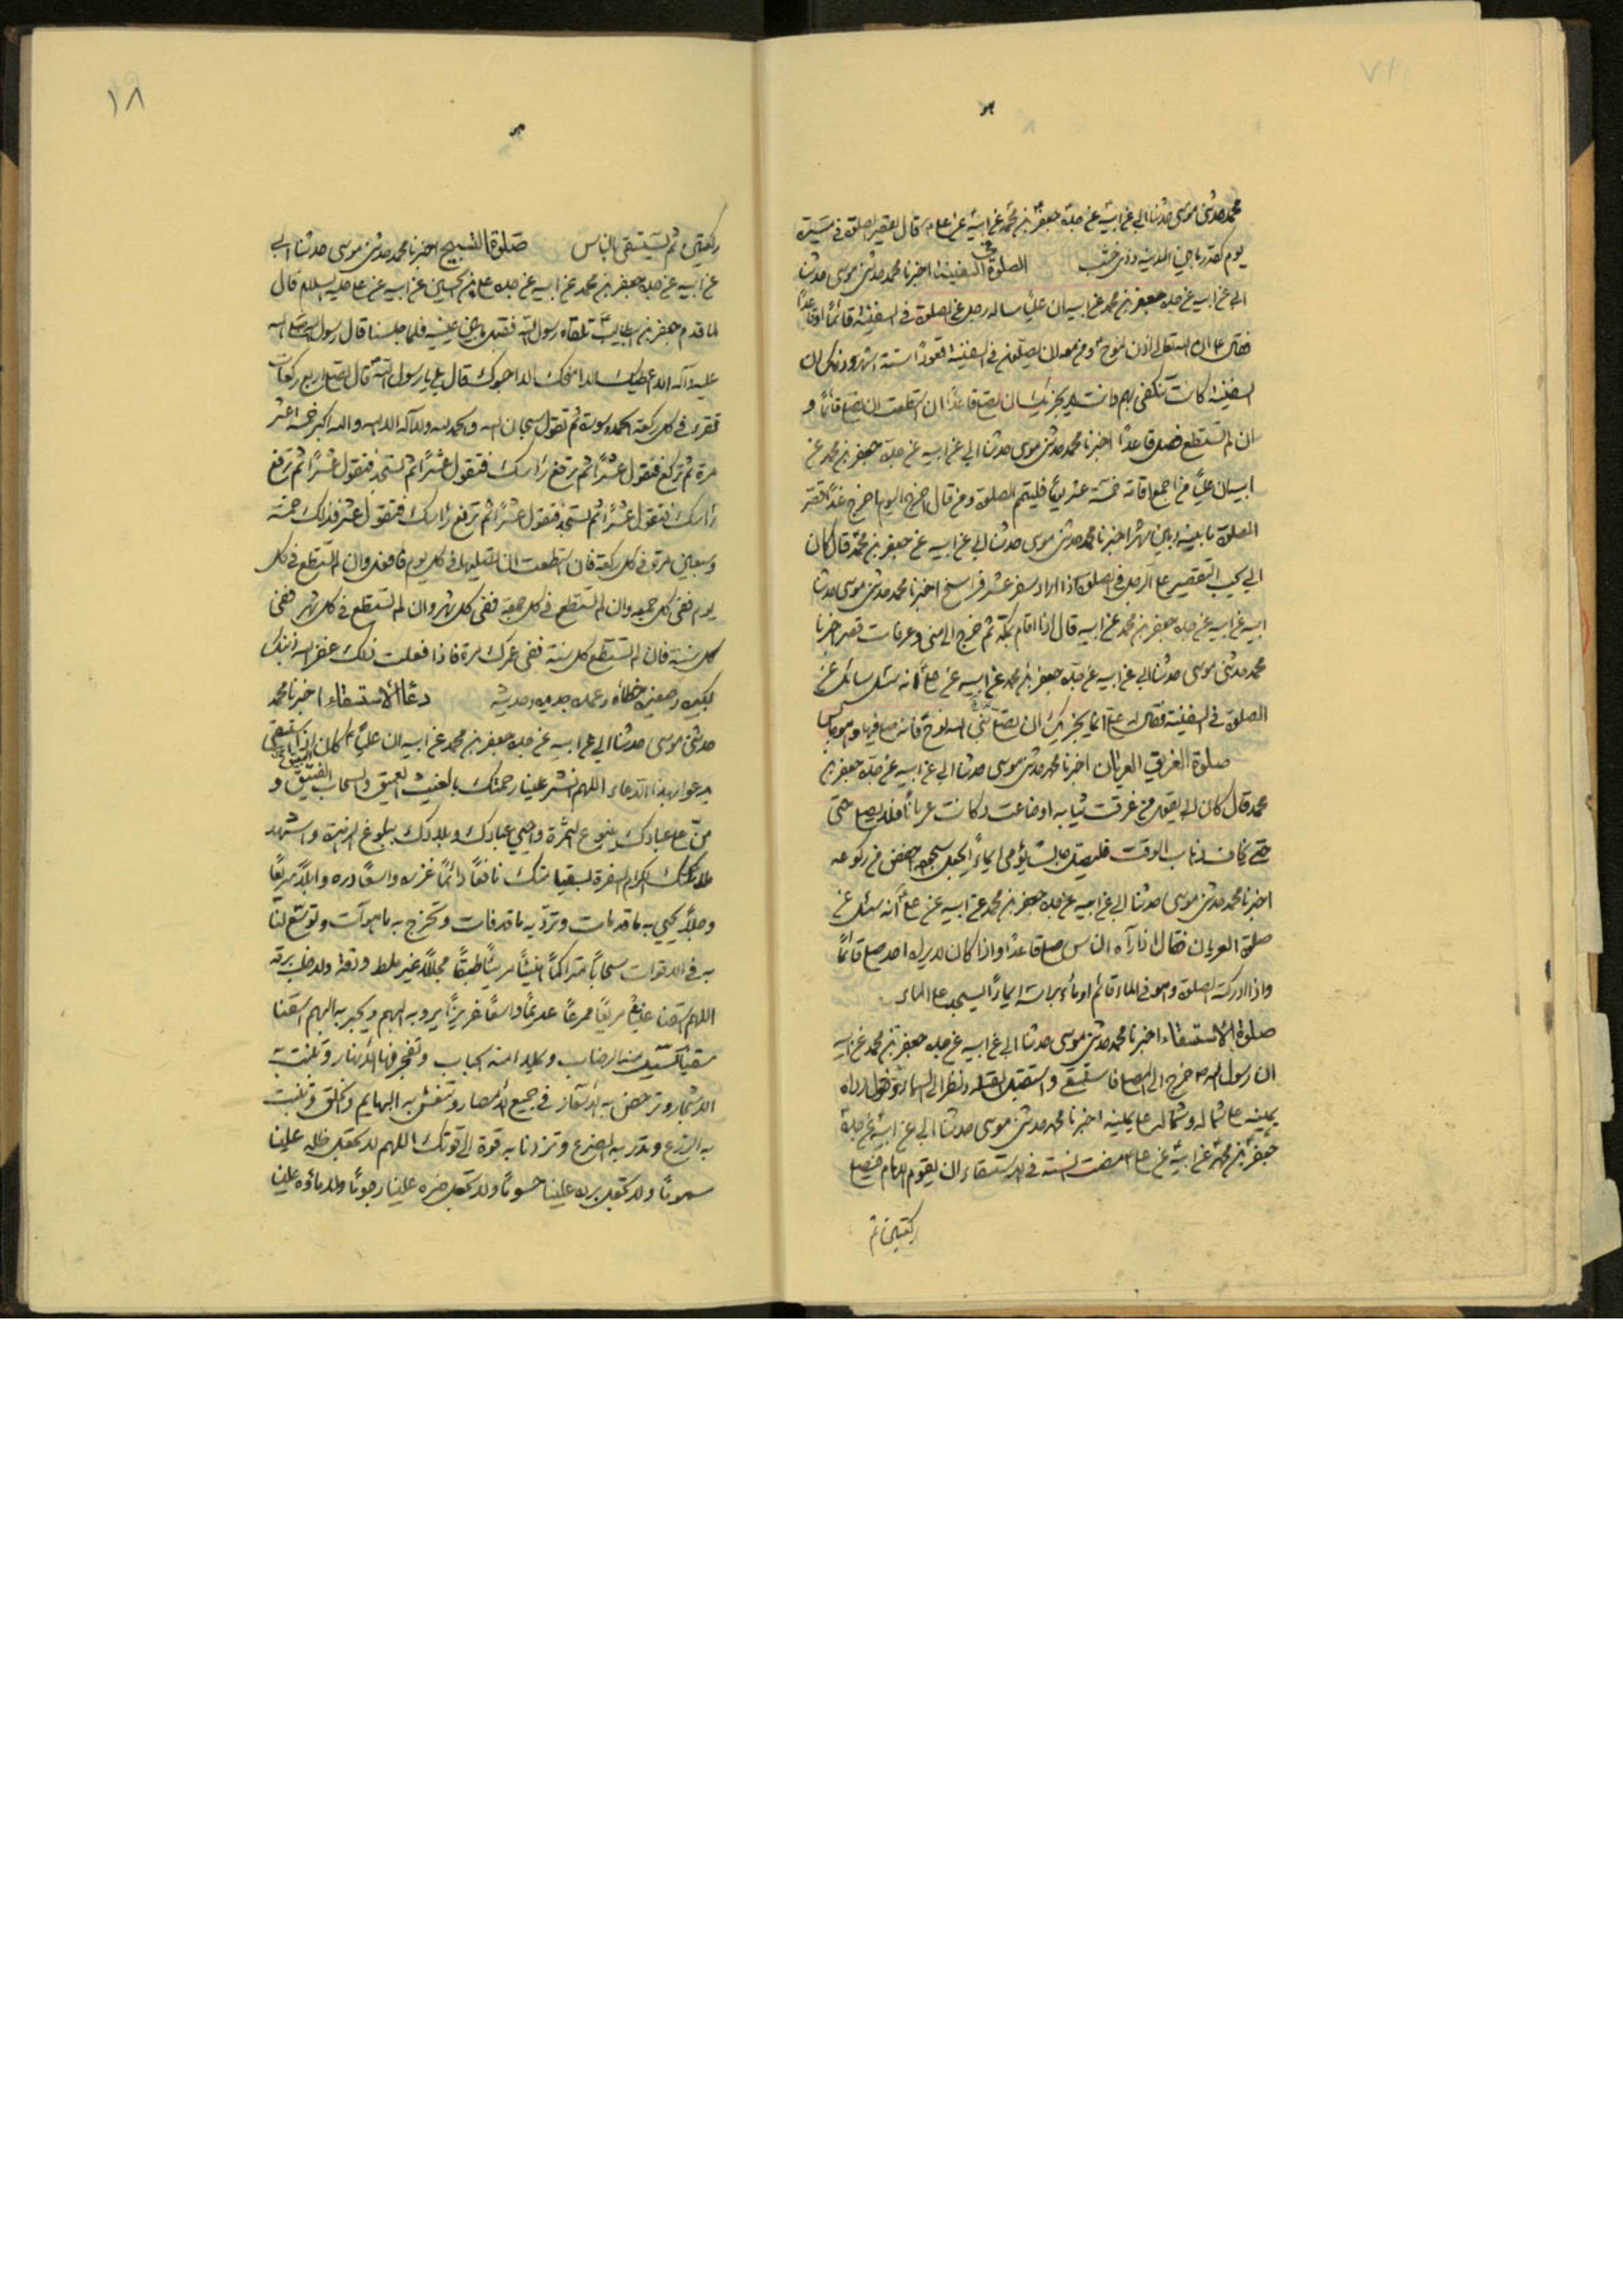 محمد حدثنی موسی حدثنا ابی عن ابیه عن جده جعفر بن محمد عن ابیه عن علی قال تقصیر الصلوة فی مسیرة
یوم کقدر ما بین المدینة وذی خشب الصلوة فی السفینة اخبرنا محمد حدثنی موسی حدثنا
ابی عن ابیه عن جده جعفر بن محمد عن ابیه ان علیاً ساله رجل عن الصلوة فی السفینة قائماً او قاعداً
فقال ان الله تعالی اذن لنوح ومن معه ان یصلون فی السفینة قعوداً ستة اشهر وذلک ان
السفینة کانت تنکفی بهم وانت یجزیک ان تصلی قاعداً ان استطعت ان تصلی قائماً و
ان لم تستطع فصل قاعداً اخبرنا محمد حدثنی موسی حدثنا ابی عن ابیه عن جده جعفر بن محمد عن
ابیه ان علیاً من اجمع اقامة خمسة عشر یوماً فلیتم الصلوة ومن قال اخرج الیوم اخرج غداً قصر
الصلوة ما بینه وبین شهر اخبرنا محمد حدثنی موسی حدثنا ابی عن ابیه عن جعفر بن محمد قال کان
ابی یحب التقصیر علی الرجل فی الصلوة اذا اراد سفر عشر فراسخ اخبرنا محمد حدثنی موسی حدثنا
ابیه عن ابیه عن جده جعفر بن محمد عن ابیه قال اذا اقام بمکة ثم خرج الی منی وعرفات قصر اخبرنا
محمد حدثنی موسی حدثنا ابی عن ابیه عن جده جعفر بن محمد عن ابیه عن علی انه سئل عن
الصلوة فی السفینة فقال له علی اما یجزیک ان تصلی نبی الله نوح فانه صلی فیها وهو جالس
صلوة الغریق العریان اخبرنا محمد حدثنی موسی حدثنا ابی عن ابیه عن جده جعفر بن
محمد قال کان ابی یقول من غرقت ثیابه او ضاعت وکانت عریاناً فلا یصلی حتی
ذهاب الوقت فلیصل جالساً یؤمی ایماءً یجعل سجوده اخفض من رکوعه
اخبرنا محمد حدثنی موسی حدثنا ابی عن ابیه عن جده جعفر بن محمد عن ابیه عن علی انه سئل عن
صلوة العریان فقال اذا رآه الناس صلی قاعداً واذا کان لا یراه احد صلی قائماً
واذا ادرکته الصلوة وهو فی الماء قائم اومأ براسه ایماءً ولا یسجد علی الماء
صلوة الاستسقاء اخبرنا محمد حدثنی موسی حدثنا ابی عن ابیه عن جده جعفر بن محمد عن ابیه
ان رسول الله خرج الی المصلی فاستسقی واستقبل القبلة ونظر الی السماء وحول رداه
یمینه علی شماله وشماله علی یمینه اخبرنا محمد حدثنی موسی حدثنا ابی عن ابیه عن جده
جعفر بن محمد عن ابیه عن علی مضت السنة فی الاستسقاء ان یقوم الامام فیصلی
رکعتین ثم
۱۸
رکعتین ثم یستسقی بالناس صلوة التسبیح اخبرنا محمد حدثنی موسی حدثنا ابی
عن ابیه عن جده جعفر بن محمد عن ابیه عن جده علی بن الحسین عن ابیه عن علی علیه السلام قال
لما قدم جعفر بن ابیطالب تلقاه رسول الله فقبل ما بین عینیه فلما جلسنا قال رسول الله صلی الله
علیه وآله الا اعطیک الا امنحک الا احبوک قال بلی یا رسول الله قال تصلی اربع رکعات
تقرء فی کل رکعة الحمد وسورة ثم تقول سبحان الله والحمد لله ولا اله الا الله والله اکبر خمسة عشر
مرة ثم ترکع فتقول عشراً ثم ترفع راسک فتقول عشراً ثم تسجد فتقول عشراً ثم ترفع
راسک فتقول عشراً ثم تسجد فتقول عشراً ثم ترفع راسک فتقول عشر فذلک خمسة
وسبعین مرة فی کل رکعة فان استطعت ان تصلیها فی کل یوم فافعل وان لم تستطع فی کل
یوم ففی کل جمعه وان لم تستطع فی کل جمعة ففی کل شهر وان لم تستطع فی کل شهر ففی
کل سنة فان لم تستطع کل سنة ففی عمرک مرة فاذا فعلت ذلک غفر الله ذنبک
کبیره وصغیره خطأه وعمده جدیده وحدیثه دعاء الاستسقاء اخبرنا محمد
حدثنی موسی حدثنا ابی عن ابیه عن جده جعفر بن محمد عن ابیه ان علیاً کان اذا استسقی
یدعوا بهذا الدعاء اللهم انشر علینا رحمتک بالغیث العمیق والسحاب الفتیق و
من علی عبادک بینوع الثمرة واحیی عبادک وبلادک ببلوغ الزهرة واشهد
ملائکتک الکرام السفرة بسقیا منک نافعاً دائماً غزره واسعاً دره وابلاً سریعاً
وجلاً یحیی به ما قد مات وترد به ما قد فات وتخرج به ما هو آت وتوسع لنا
به فی الاقوات سحاباً متراکماً هنیئاً مریئاً طبقاً مجللاً غیر ملط ودقه ولا خلب برقه
اللهم اسقنا غیثاً مریعاً ممرعاً عریضاً واسعاً غزیراً یرد به النهیم ویجبر به النهیم اسقنا
سقیاً تسیل منه الرضاب ویملاء منه الجباب وتفجر منها الانهار وتنبت به
الاشجار وترخص به الاسعار فی جمیع الامصار وتنعش به البهایم والخلق وتنبت
به الزرع وتدر به الضرع وتزدنا به قوة الی قوتک اللهم لا تجعل ظله علینا
سموماً ولا تجعل برده علینا حسوماً ولا تجعل ضره علینا رجوماً ولا ماؤه علینا